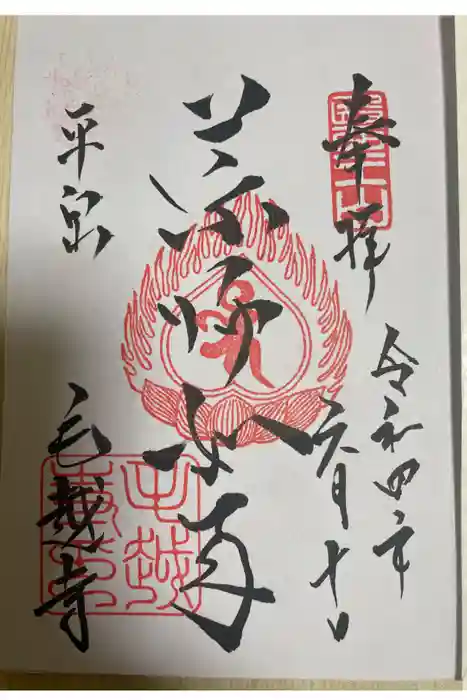 奉拝
令和四年
六月十日
薬師如来
平泉
毛越寺